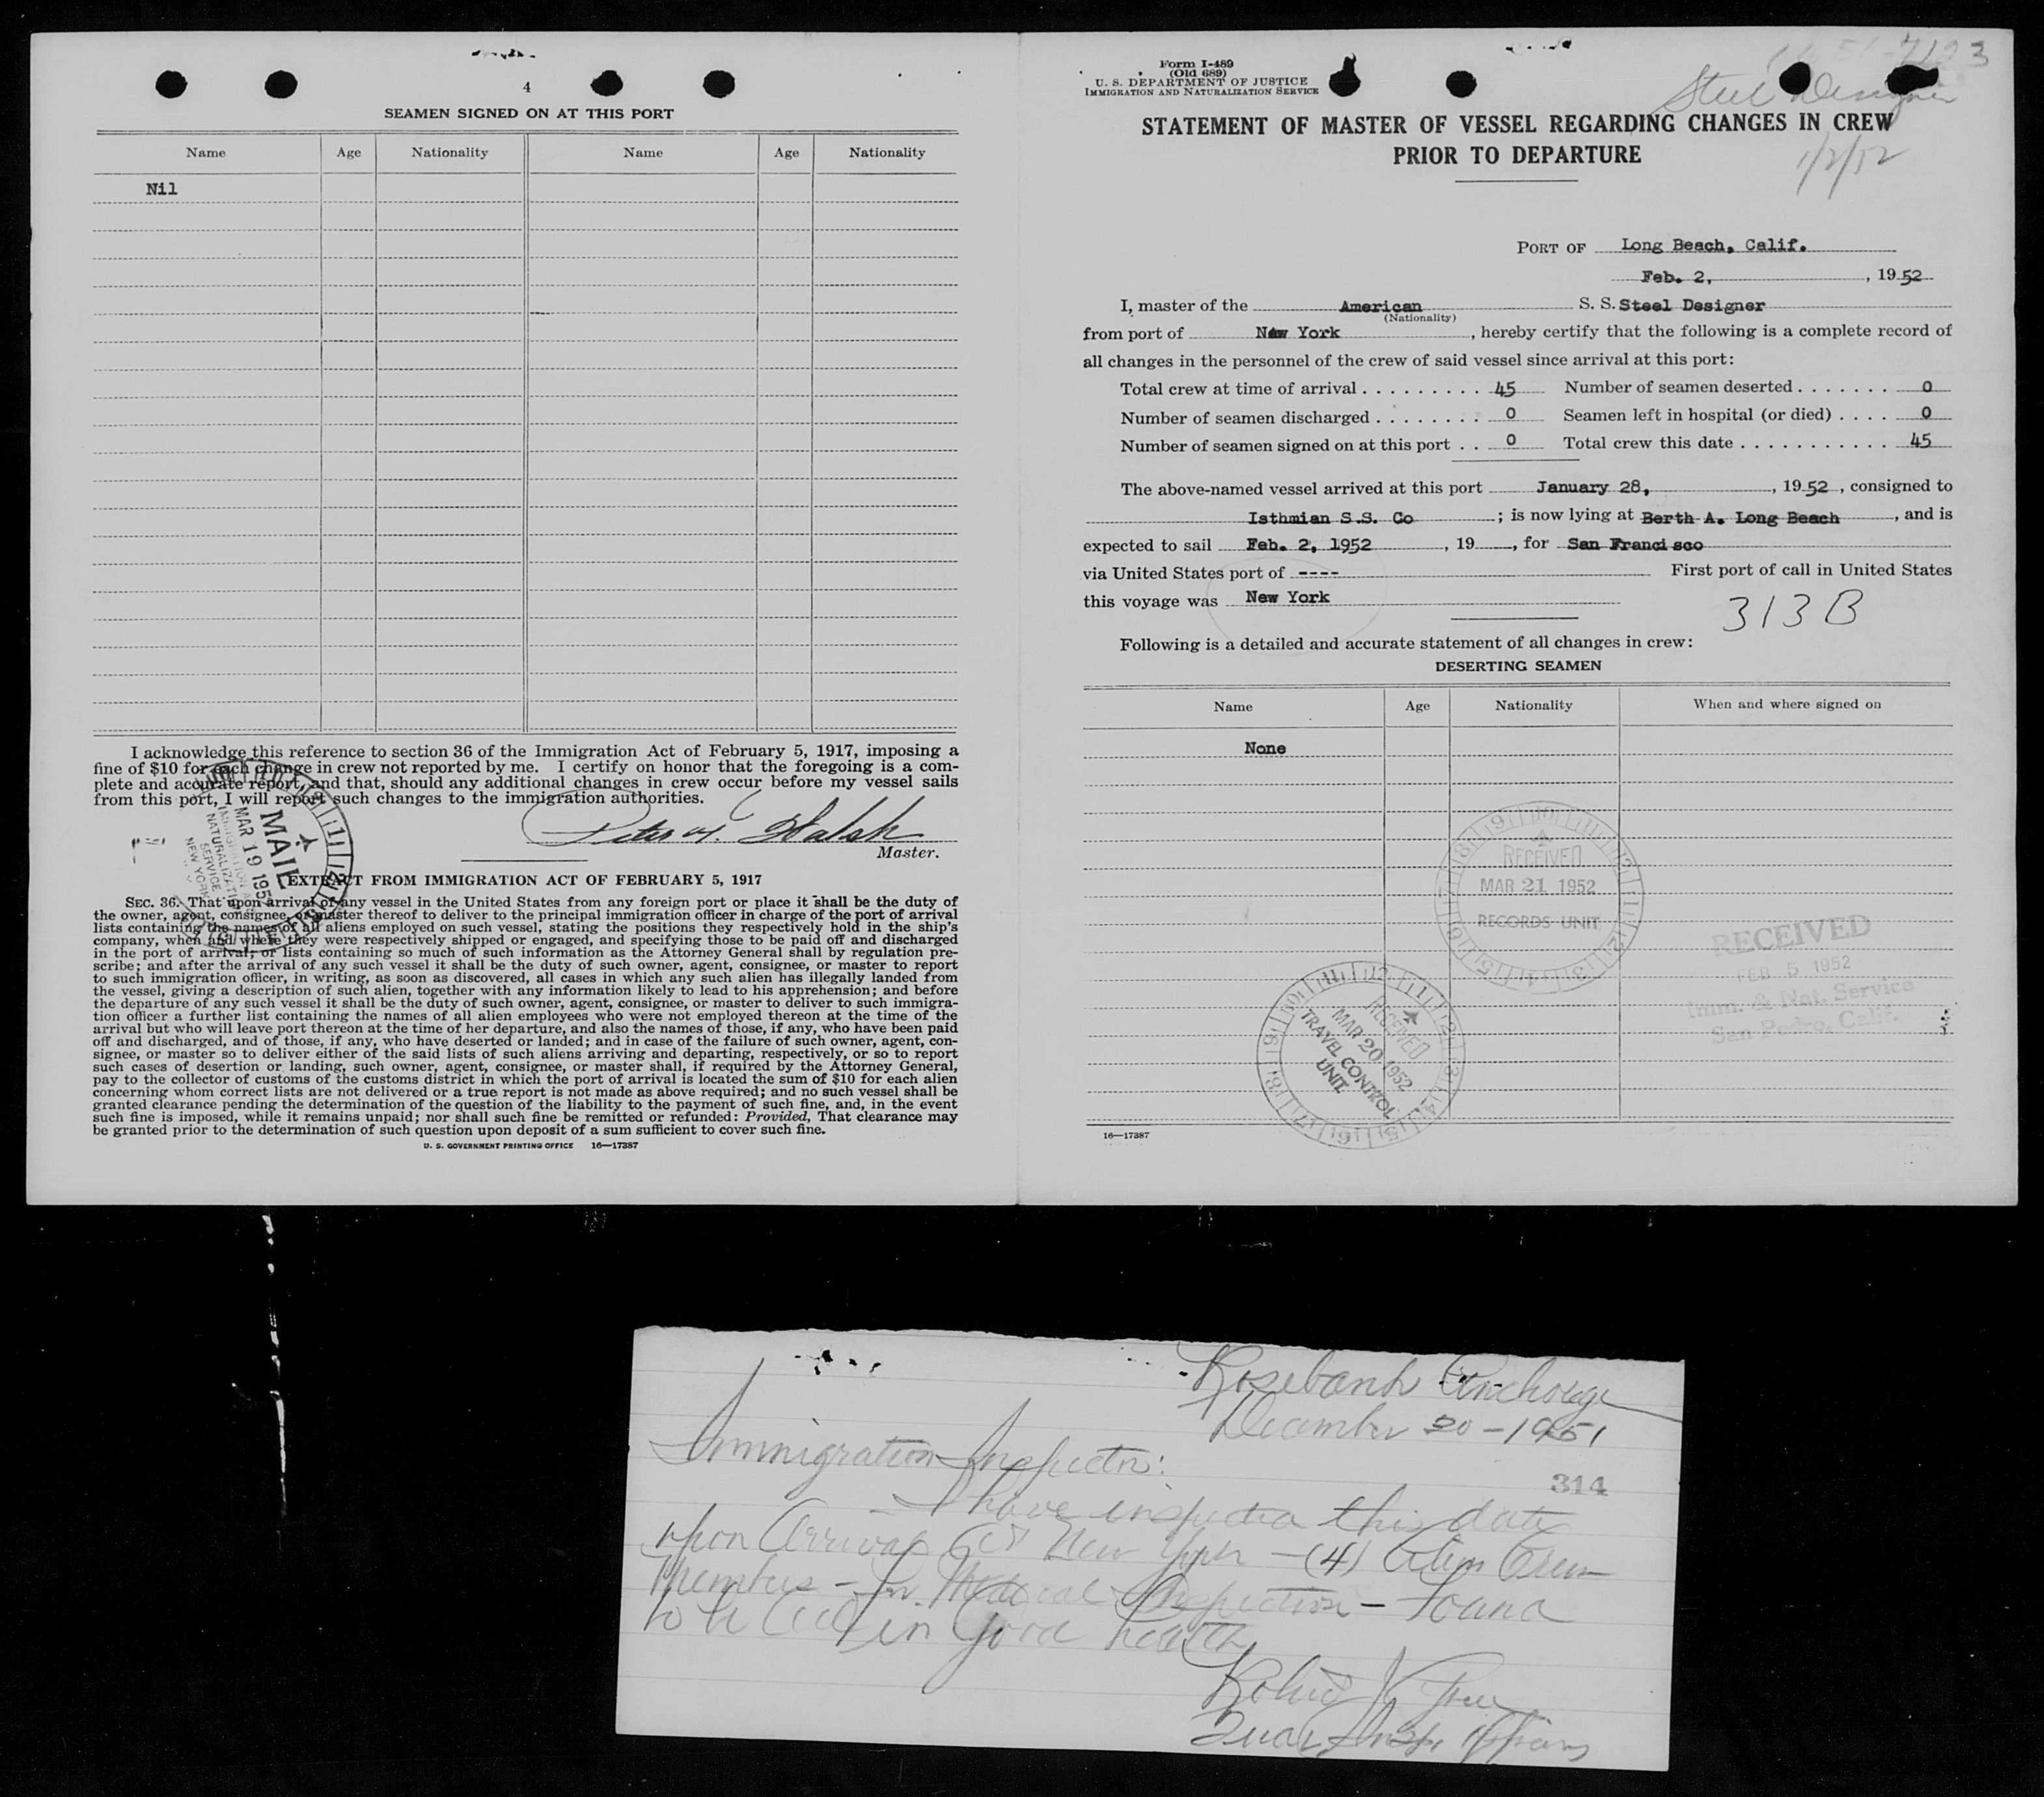 4
SEAMEN SIGNED ON AT THIS PORT
Name Age Nationality Name Age Nationality
Nil
I acknowledge this reference to section 36 of the Immigration Act of February 5, 1917, imposing a
fine of $10 for each change in crew not reported by me. I certify on honor that the foregoing is a com-
plete and accurate report, and that, should any additional changes in crew occur before my vessel sails
from this port, I will report such changes to the immigration authorities.
Master.
MAIL
MAR 19 195
IMMIGRATION
NATURALIZAT
SERVICE
NEW YORK
EXTRACT FROM IMMIGRATION ACT OF FEBRUARY 5, 1917
SEC. 36. That upon arrival of any vessel in the United States from any foreign port or place it shall be the duty of
the owner, agent, consignee, or master thereof to deliver to the principal immigration officer in charge of the port of arrival
lists containing the names of all aliens employed on such vessel, stating the positions they respectively hold in the ship's
company, when and where they were respectively shipped or engaged, and specifying those to be paid off and discharged
in the port of arrival; or lists containing so much of such information as the Attorney General shall by regulation pre-
scribe; and after the arrival of any such vessel it shall be the duty of such owner, agent, consignee, or master to report
to such immigration officer, in writing, as soon as discovered, all cases in which any such alien has illegally landed from
the vessel, giving a description of such alien, together with any information likely to lead to his apprehension; and before
the departure of any such vessel it shall be the duty of such owner, agent, consignee, or master to deliver to such immigra-
tion officer a further list containing the names of all alien employees who were not employed thereon at the time of the
arrival but who will leave port thereon at the time of her departure, and also the names of those, if any, who have been paid
off and discharged, and of those, if any, who have deserted or landed; and in case of the failure of such owner, agent, con-
signee, or master so to deliver either of the said lists of such aliens arriving and departing, respectively, or so to report
such cases of desertion or landing, such owner, agent, consignee, or master shall, if required by the Attorney General,
pay to the collector of customs of the customs district in which the port of arrival is located the sum of $10 for each alien
concerning whom correct lists are not delivered or a true report is not made as above required; and no such vessel shall be
granted clearance pending the determination of the question of the liability to the payment of such fine, and, in the event
such fine is imposed, while it remains unpaid; nor shall such fine be remitted or refunded: Provided, That clearance may
be granted prior to the determination of such question upon deposit of a sum sufficient to cover such fine.
U. S. GOVERNMENT PRINTING OFFICE 16—17387
Form I-489
(Old 689)
U. S. DEPARTMENT OF JUSTICE
IMMIGRATION AND NATURALIZATION SERVICE
Steel Designer
STATEMENT OF MASTER OF VESSEL REGARDING CHANGES IN CREW
PRIOR TO DEPARTURE
1/2/52
PORT OF Long Beach, Calif.
Feb. 2, , 19 52
I, master of the American S. S. Steel Designer
(Nationality)
from port of New York , hereby certify that the following is a complete record of
all changes in the personnel of the crew of said vessel since arrival at this port:
Total crew at time of arrival . . . . . . . . . . 45 Number of seamen deserted . . . . . . . 0
Number of seamen discharged . . . . . . . . 0 Seamen left in hospital (or died) . . . . 0
Number of seamen signed on at this port . . 0 Total crew this date . . . . . . . . . . . . 45
The above-named vessel arrived at this port January 28, , 19 52 , consigned to
Isthmian S.S. Co ; is now lying at Berth A. Long Beach , and is
expected to sail Feb. 2, 1952 , 19 , for San Francisco
via United States port of ---- First port of call in United States
this voyage was New York
313B
Following is a detailed and accurate statement of all changes in crew:
DESERTING SEAMEN
Name Age Nationality When and where signed on
None
RECEIVED
MAR 21 1952
RECORDS UNIT
RECEIVED
FEB 5 1952
Imm. & Nat. Service
San Pedro, Calif.
RECEIVED
MAR 20 1952
TRAVEL CONTROL
UNIT
16—17387
Rosebank Anchorage
December 20 - 1951
Immigration Inspector:
314
I have inspected this date
upon Arrival at New York - (4) Alien Crew
Members - for Medical Inspection - Found
to be all in good health